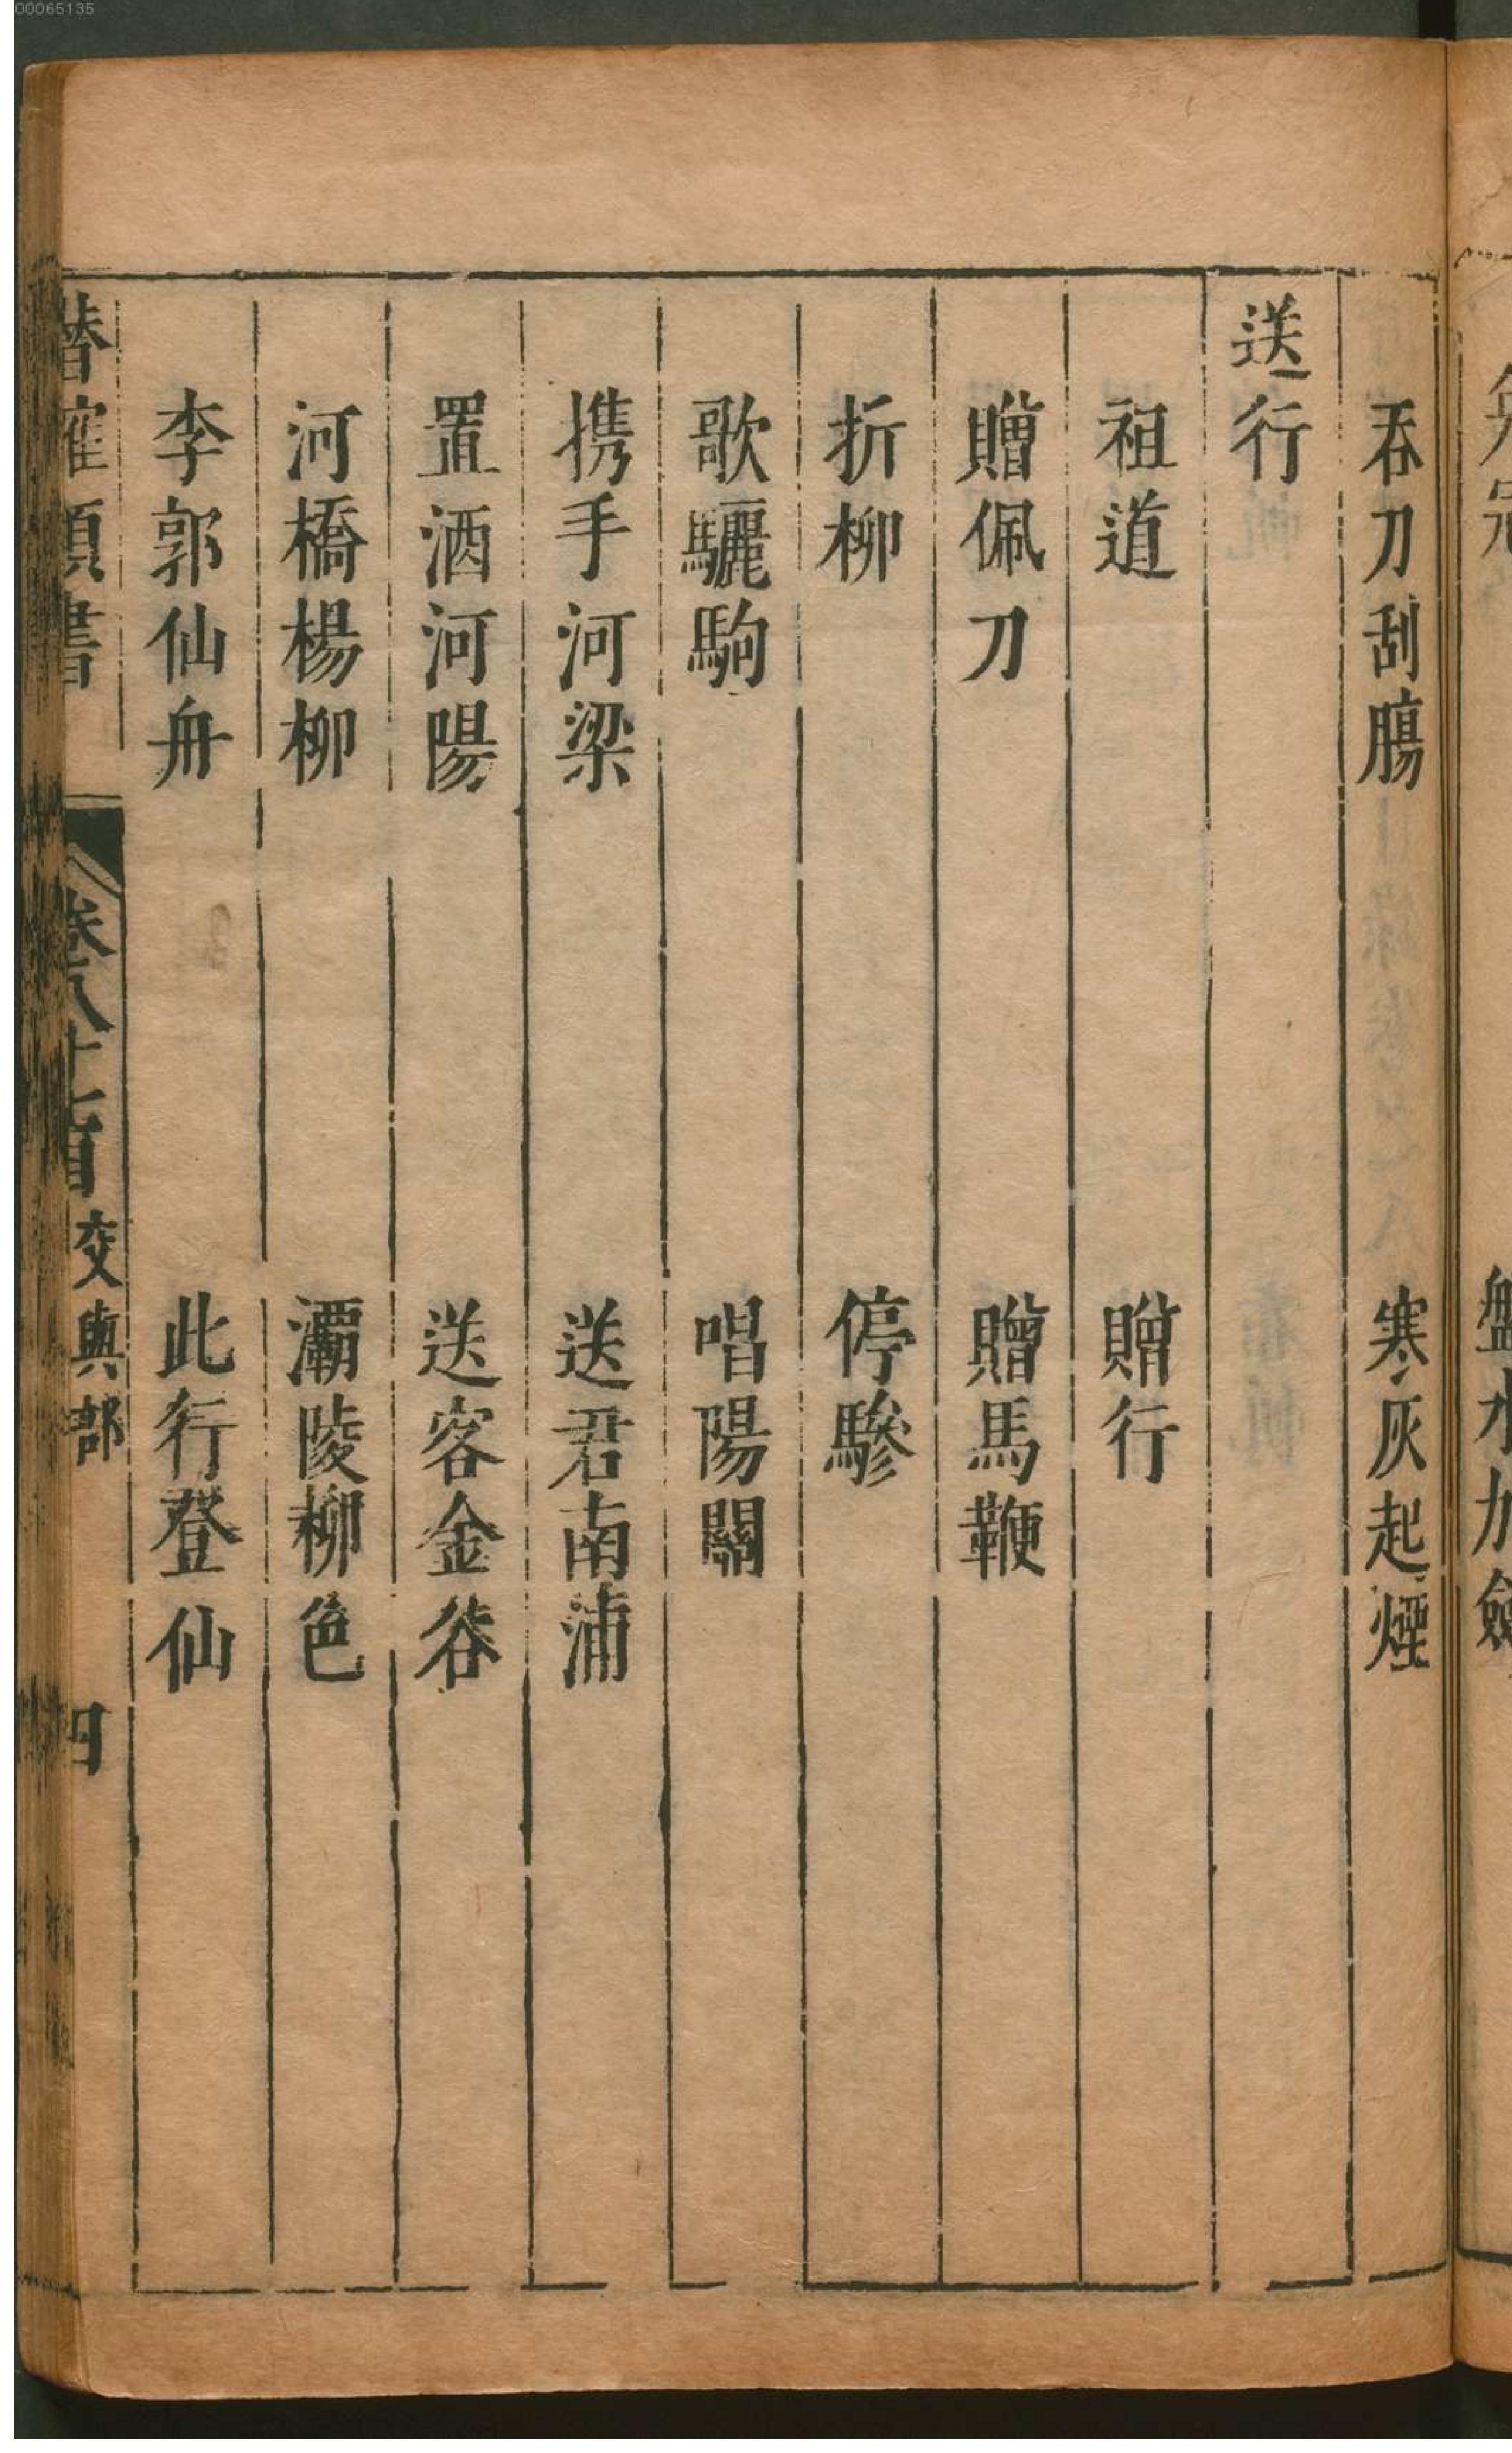 00065135
吞刀刮膓　寒灰起煙
送行
祖道　贈行
贈佩刀　贈馬鞭
折柳　停驂
歌驪駒　唱陽關
携手河梁　送君南浦
置酒河陽　送客金谷
河橋楊柳　灞陵柳色
李郭仙舟　此行登仙
卷八十七目　交與部　四